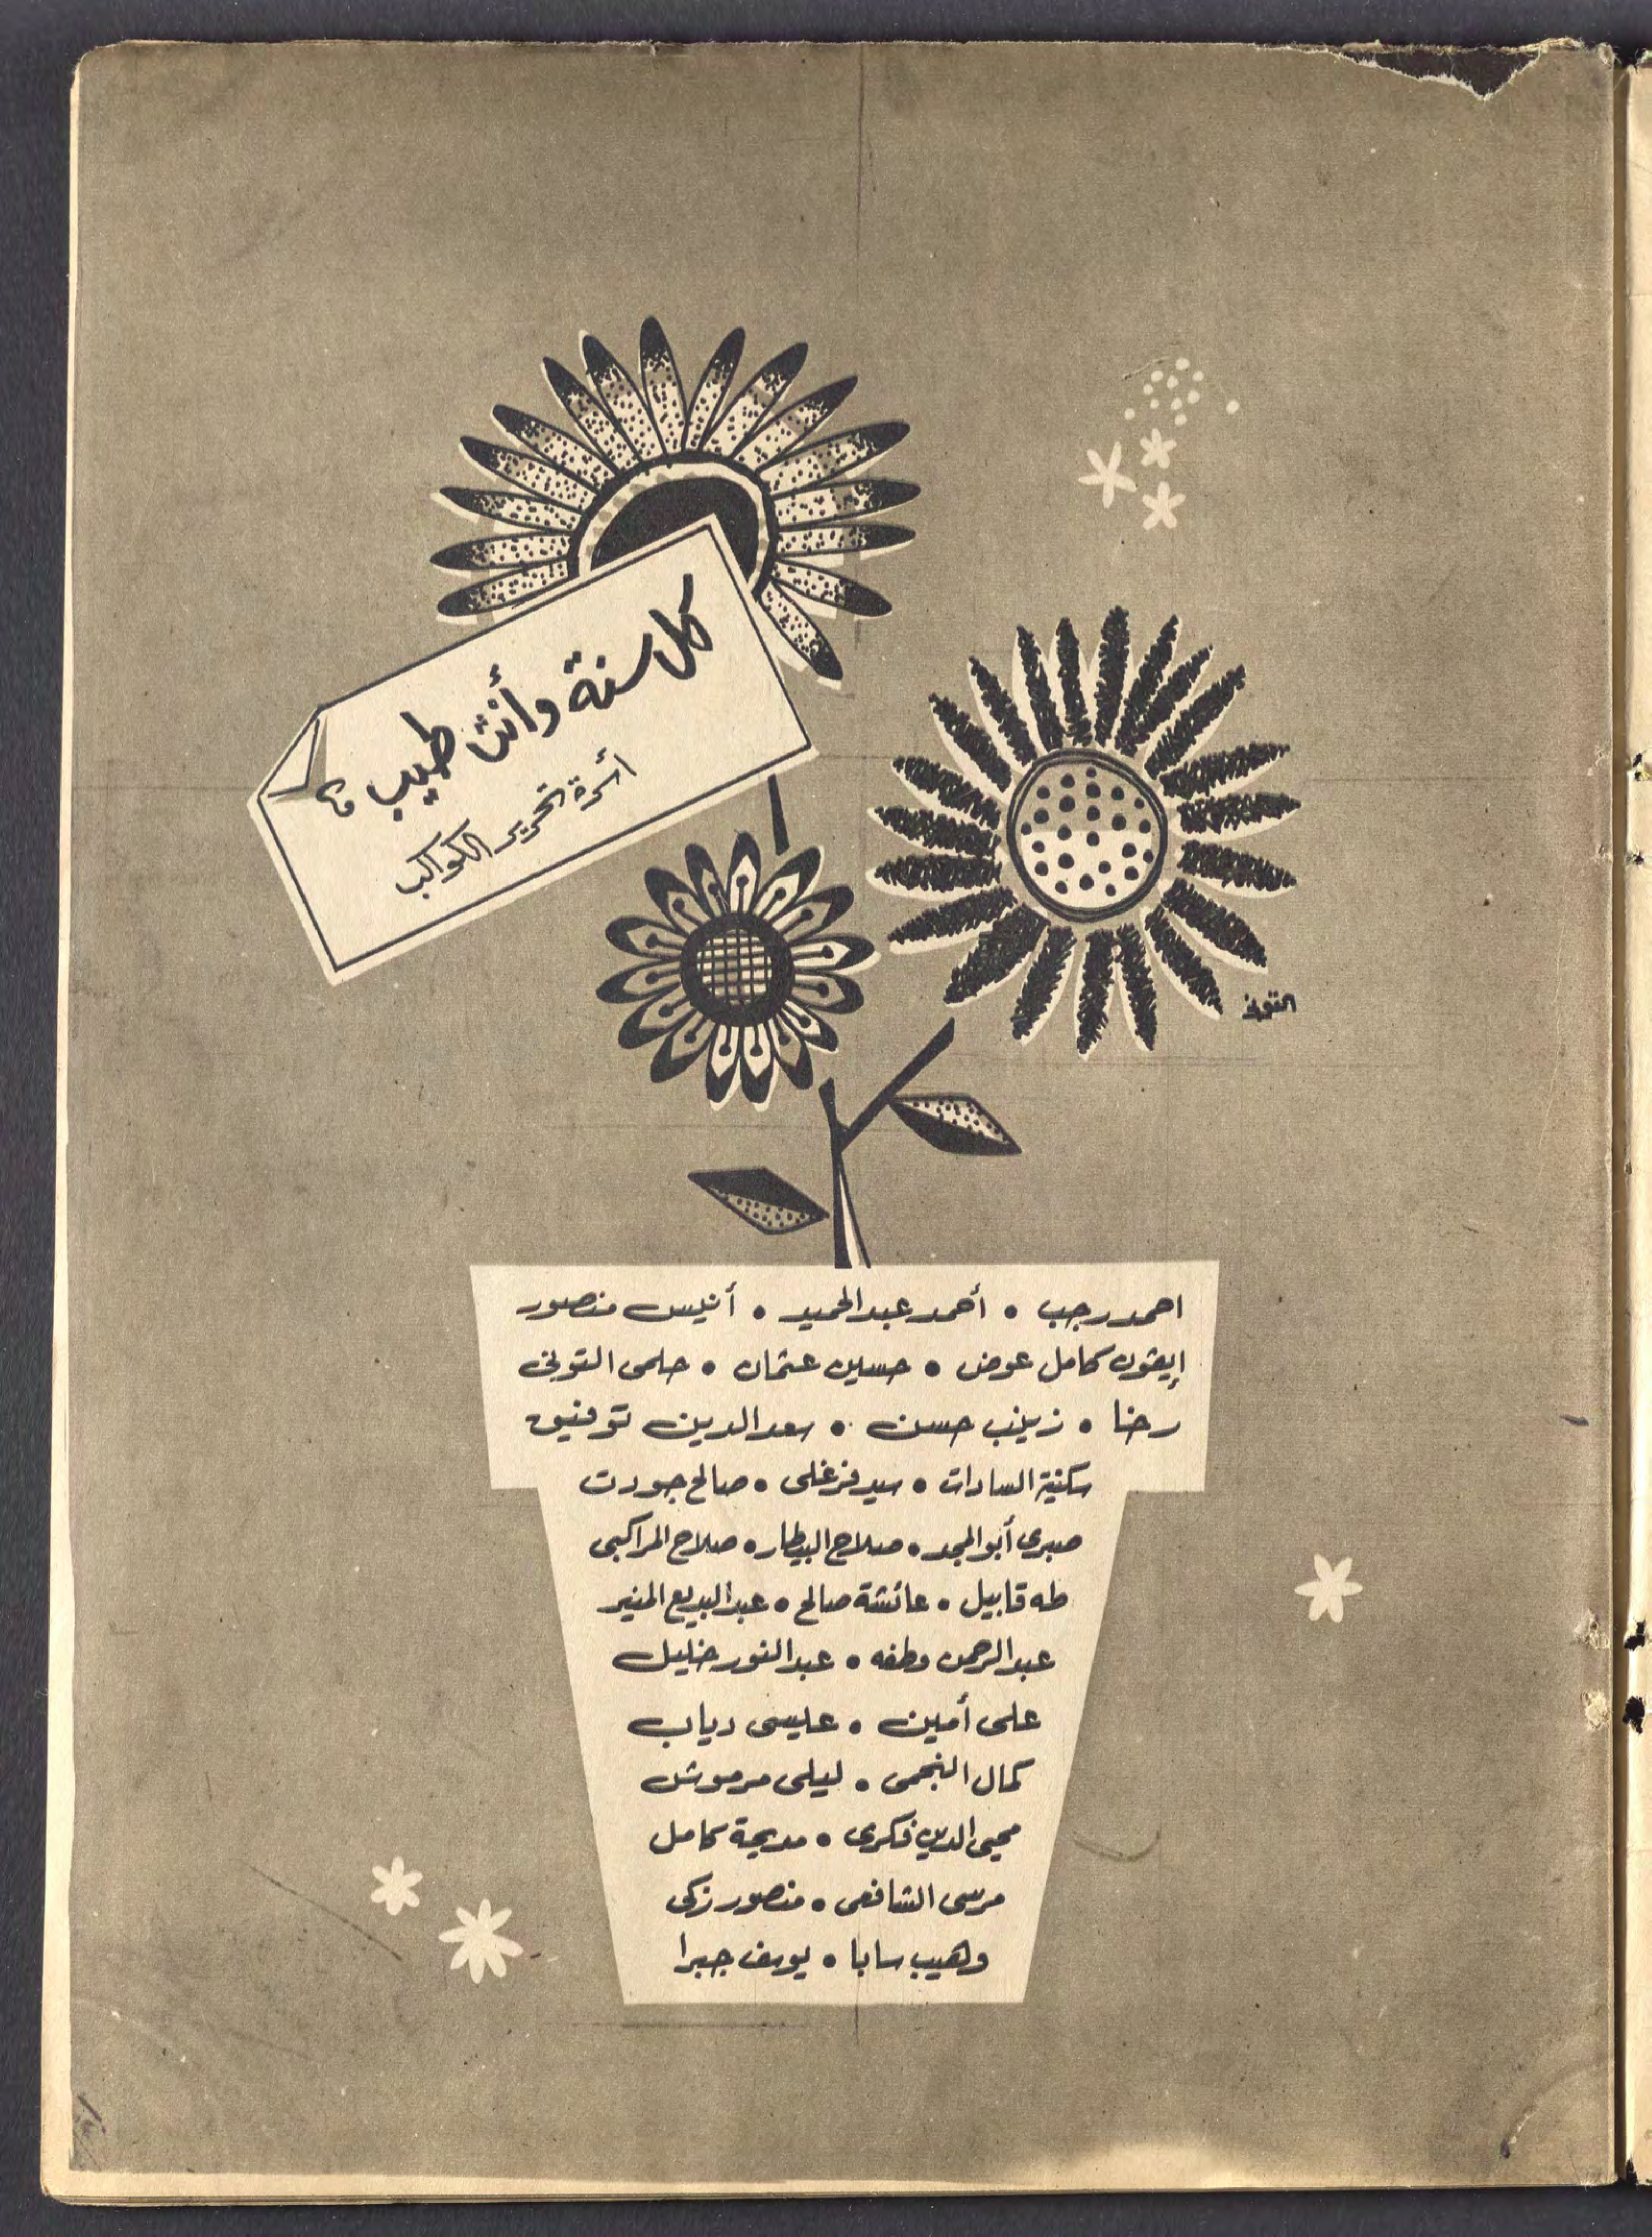 كل سنة وأنت طيب
أسرة تحرير الكواكب
التونى
احمد رجب • أحمد عبد الحميد • أنيس منصور
إيڤون كامل عوض • حسين عثمان • حلمى التونى
رضا • زينب حسن • سعد الدين توفيق
سكينة السادات • سيد فرغلى • صالح جودت
صبرى أبو المجد • صلاح البيطار • صلاح المراكبى
طه قابيل • عائشة صالح • عبد البديع المنير
عبد الرحمن وطفه • عبد النور خليل
على أمين • عيسى دياب
كمال النجمى • ليلى مرموش
محيى الدين فكرى • مديحة كامل
مرسى الشافعى • منصور زكى
وهيب سابا • يوسف جبرا